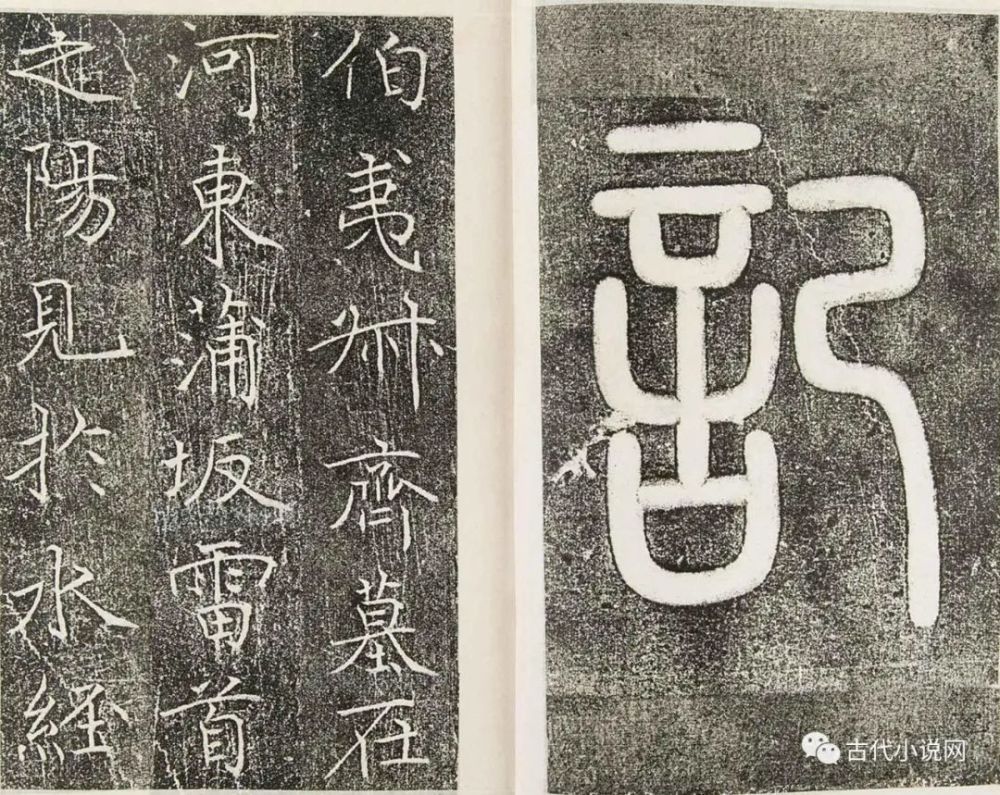 記
伯夷叔齊墓在
河東蒲坂雷首
之陽見於水經
古代小说网